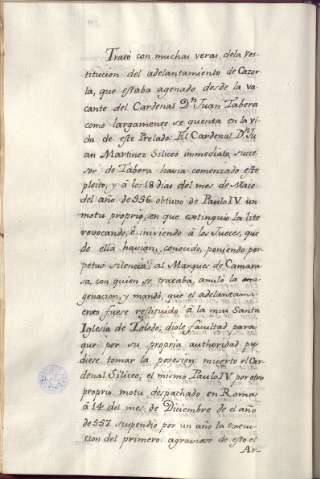 Tratò con muchas veras dela res-
titucion del adelantamiento de Cazor
la, que estaba agenado desde la va
cante del Cardenal Dⁿ Juan Tabera
como largamente se quenta en la vi
da de este Prelado. El Cardenal Dⁿ Ju
an Martinez Siliceo inmediato succe
sor de Tabera havia comenzado este
pleito, y à los 18 dias del mes de
del año de 556 obtuvo de Paulo IV. un
motu proprio, en que extinguio la lite
revocando, è iniviendo à los Jueces, que
de ella havian conocido, poniendo per
petuo silencio al Marques de Camara
sa, con quien se trataba, anulò la
genacion, y mandò, que el adelantami
ento fuese restituido à la mui Santa
Iglesia de Toledo, diole facultad para
que por su propria authoridad pu
diese tomar la posesion: muerto el Car
denal Siliceo, el mismo Paulo IV por otro
proprio motu despachado en Roma
à 14 del mes de Diciembre de el año
de 557 suspendio por un año la execu
cion del primero: agraviose de esto el
Ar-